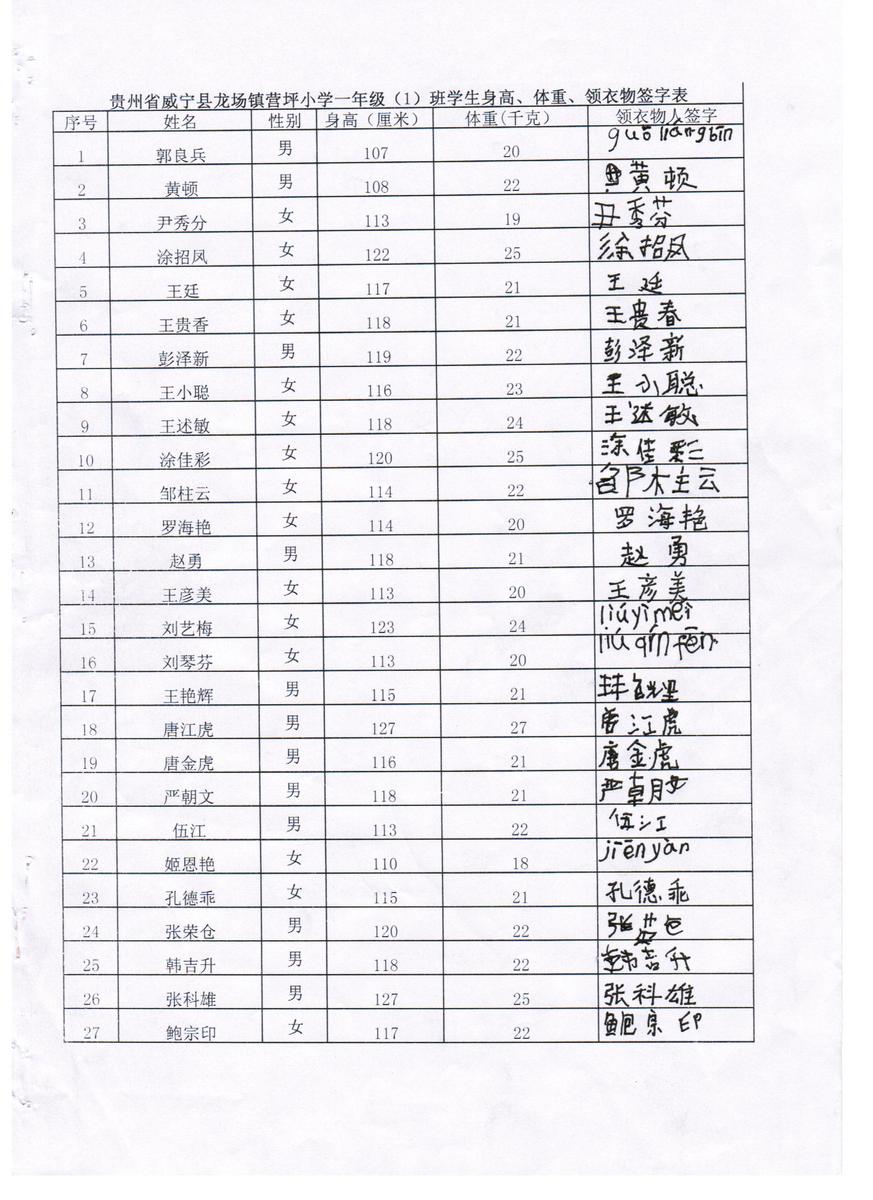 贵州省威宁县龙场镇营坪小学一年级（1）班学生身高、体重、领衣物签字表
序号 姓名 性别 身高（厘米） 体重(千克) 领衣物人签字
1 郭良兵 男 107 20 guō liángbīn
2 黄顿 男 108 22 黄顿
3 尹秀分 女 113 19 尹秀芬
4 涂招凤 女 122 25 涂招凤
5 王廷 女 117 21 王廷
6 王贵香 女 118 21 王贵春
7 彭泽新 男 119 22 彭泽新
8 王小聪 女 116 23 王小聪
9 王述敏 女 118 24 王述敏
10 涂佳彩 女 120 25 涂佳彩
11 邹柱云 女 114 22 邹柱云
12 罗海艳 女 114 20 罗海艳
13 赵勇 男 118 21 赵勇
14 王彦美 女 113 20 王彦美
15 刘艺梅 女 123 24 liúyìméi
16 刘琴芬 女 113 20 liú qín fēn
17 王艳辉 男 115 21
18 唐江虎 男 127 27 唐江虎
19 唐金虎 男 116 21 唐金虎
20 严朝文 男 118 21 严朝文
21 伍江 男 113 22 伍江
22 姬恩艳 女 110 18 jīēnyàn
23 孔德乖 女 115 21 孔德乖
24 张荣仓 男 120 22 张荣仓
25 韩吉升 男 118 22 韩吉升
26 张科雄 男 127 25 张科雄
27 鲍宗印 女 117 22 鲍宗印